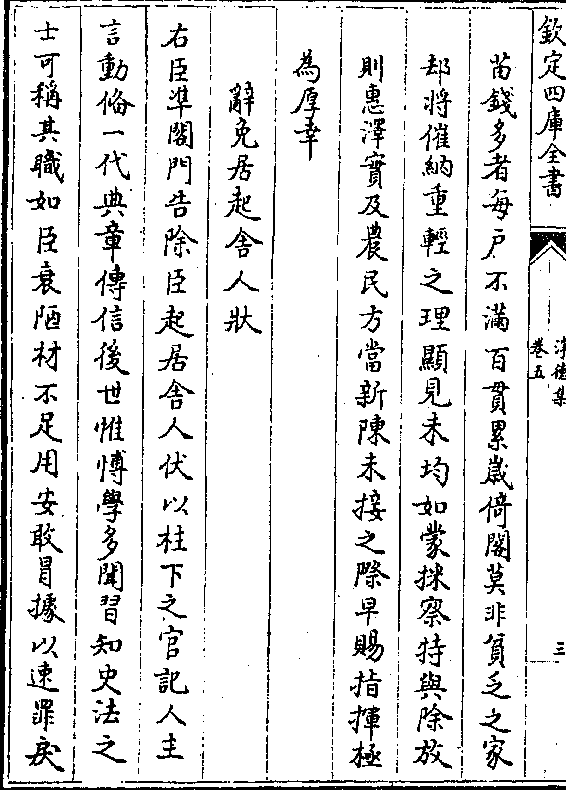 欽定四庫全書
淨德集
卷五
三
苗錢多者每戶不滿百貫累嵗倚閣莫非貧乏之家
却將催納重輕之理顯見未均如蒙採察特與除放
則惠澤實及農民方當新陳未接之際早賜指揮極
為厚幸
辭免居起舍人狀
右臣準閤門告除臣起居舍人伏以柱下之官記人主
言動脩一代典章傳信後世惟愽學多聞習知史法之
士可稱其職如臣衰陋材不足用安敢冒據以速罪戾